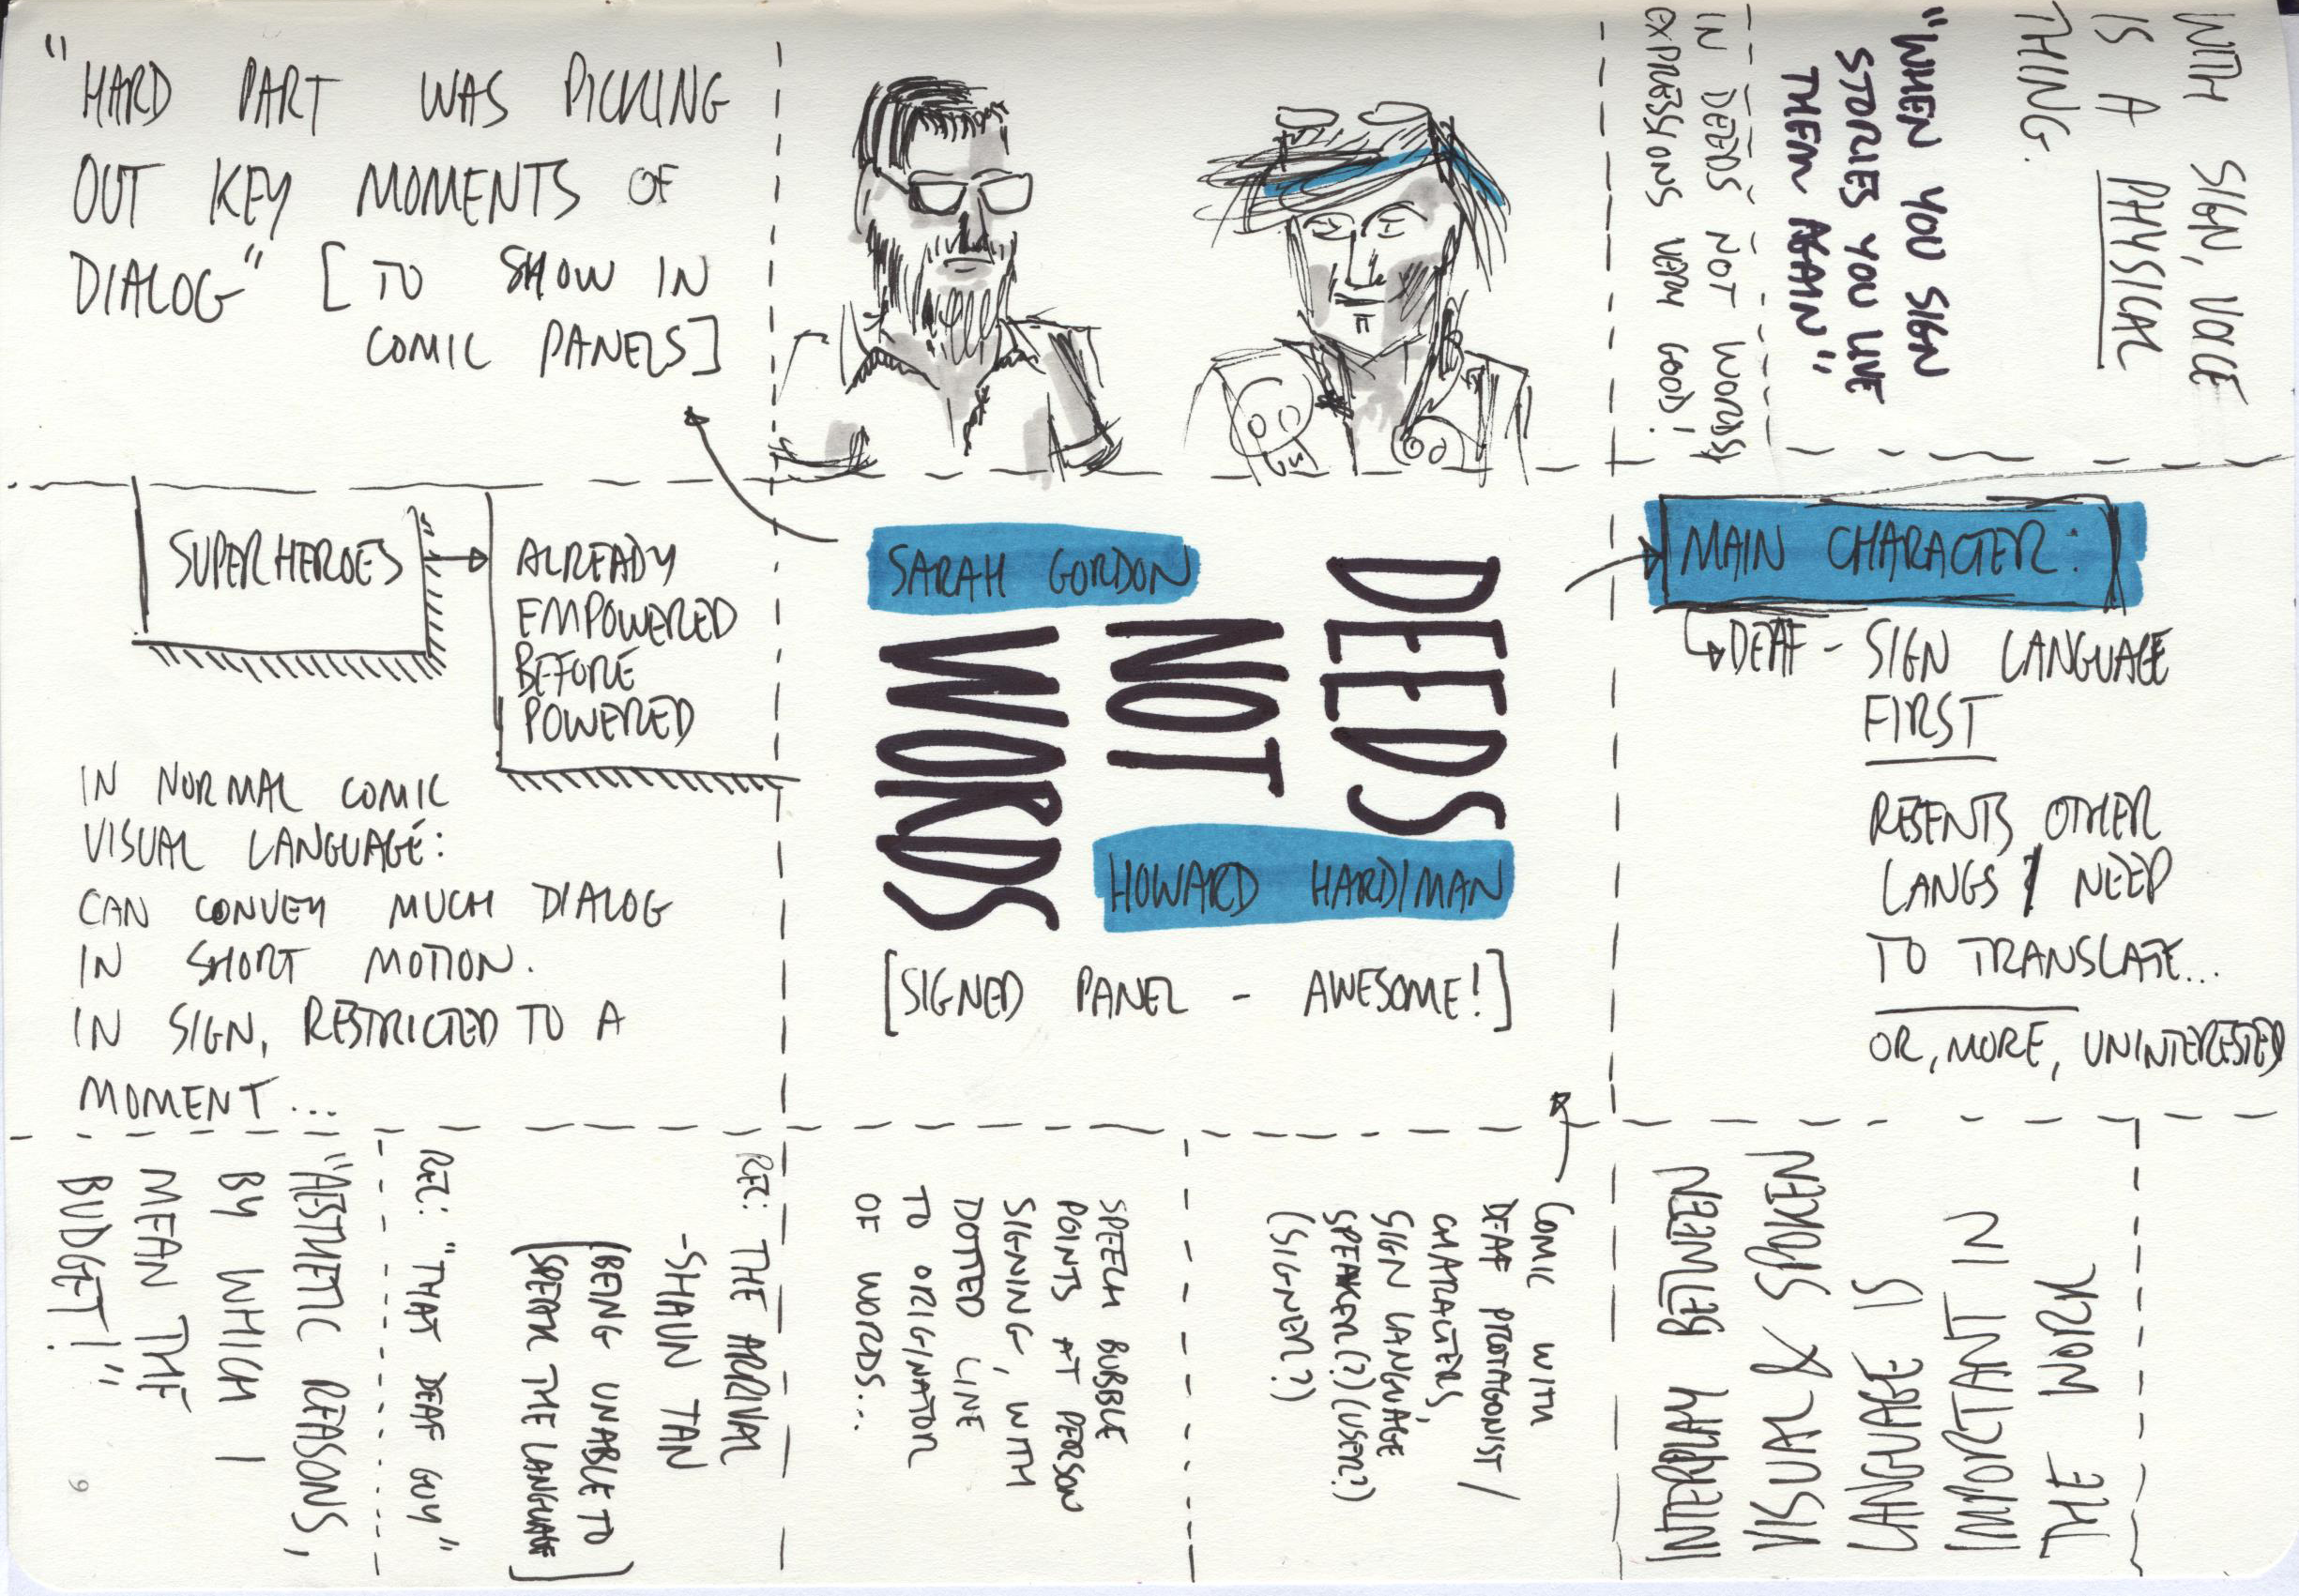 "HARD PART WAS PICKING
OUT KEY MOMENTS OF
DIALOG" [TO SHOW IN
COMIC PANELS]
WITH SIGN, VOICE
IS A PHYSICAL
THING.
"WHEN YOU SIGN
STORIES YOU LIVE
THEM AGAIN"
IN DEEDS NOT WORDS,
EXPRESSIONS VERY GOOD!
SUPERHEROES
ALREADY
EMPOWERED
BEFORE
POWERED
IN NORMAL COMIC
VISUAL LANGUAGE:
CAN CONVEY MUCH DIALOG
IN SHORT MOTION.
IN SIGN, RESTRICTED TO A
MOMENT...
SARAH GORDON
DEEDS
NOT
WORDS
HOWARD HARDIMAN
[SIGNED PANEL - AWESOME!]
MAIN CHARACTER:
DEAF - SIGN LANGUAGE
FIRST
RESENTS OTHER
LANGS / NEED
TO TRANSLATE...
OR, MORE, UNINTERESTED
REC: THE ARRIVAL
- SHAUN TAN
(BEING UNABLE TO
SPEAK THE LANGUAGE)
REC: "THAT DEAF GUY"
"AESTHETIC REASONS,
BY WHICH I
MEAN THE
BUDGET!"
9
COMIC WITH
DEAF PROTAGONIST/
CHARACTERS,
SIGN LANGUAGE
SPEAKER(?) (USER?)
(SIGNER?)
SPEECH BUBBLE
POINTS AT PERSON
SIGNING, WITH
DOTTED LINE
TO ORIGINATOR
OF WORDS...
THE WORK
IMPORTANT IN
LANGUAGE IS
VISUAL & SPOKEN
INTERPLAY BETWEEN